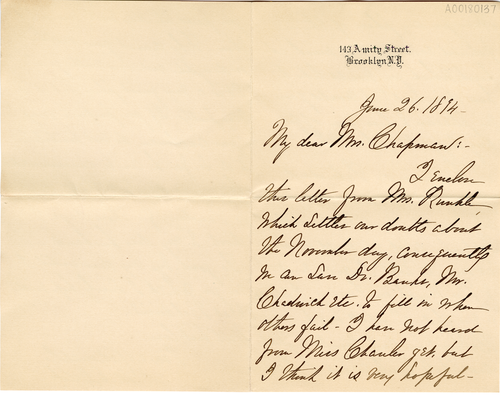 A00180137
143 Amity Street.
Brooklyn N.Y.
June 26. 1894 -
My dear Mrs. Chapman:-
I Enclose
this letter from Mrs. Runkle,
which settles our doubts about
the November day, consequently
we can save Dr. Banks, Mr.
Chadwick etc. to fill in when
others fail - I have not heard
from Miss Chanler yet, but
I think it is very hopeful -